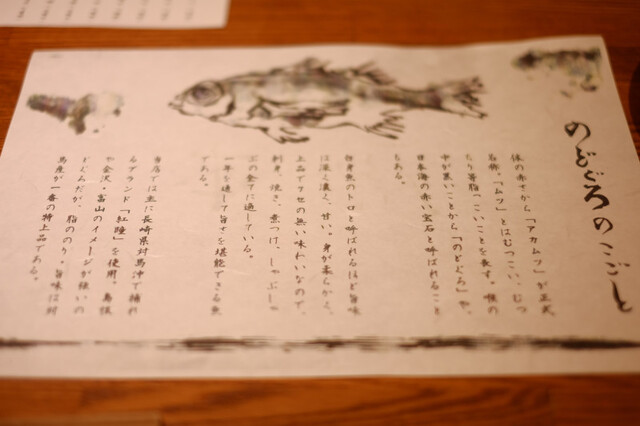 のどぐろのこごと
体の赤さから「アカムツ」が正式
名称。「ムツ」とはむつこい、むつ
ちり等脂っこいことを表す。喉の
中が黒いことから「のどぐろ」や、
日本海の赤い宝石と呼ばれること
もある。
白身魚のトロと呼ばれるほど旨味
は深く濃く、甘い。身が柔らかく、
上品でクセの無い味わいなので、
刺身、焼き、煮つけ、しゃぶしゃ
ぶの全てに適している。
一年を通して旨さを堪能できる魚
である。
当店では主に長崎県対馬沖で捕れ
るブランド「紅瞳」を使用。島根
や金沢・富山のイメージが強いの
どぐろだが、脂ののり、旨味は対
馬産が一番の特上品である。